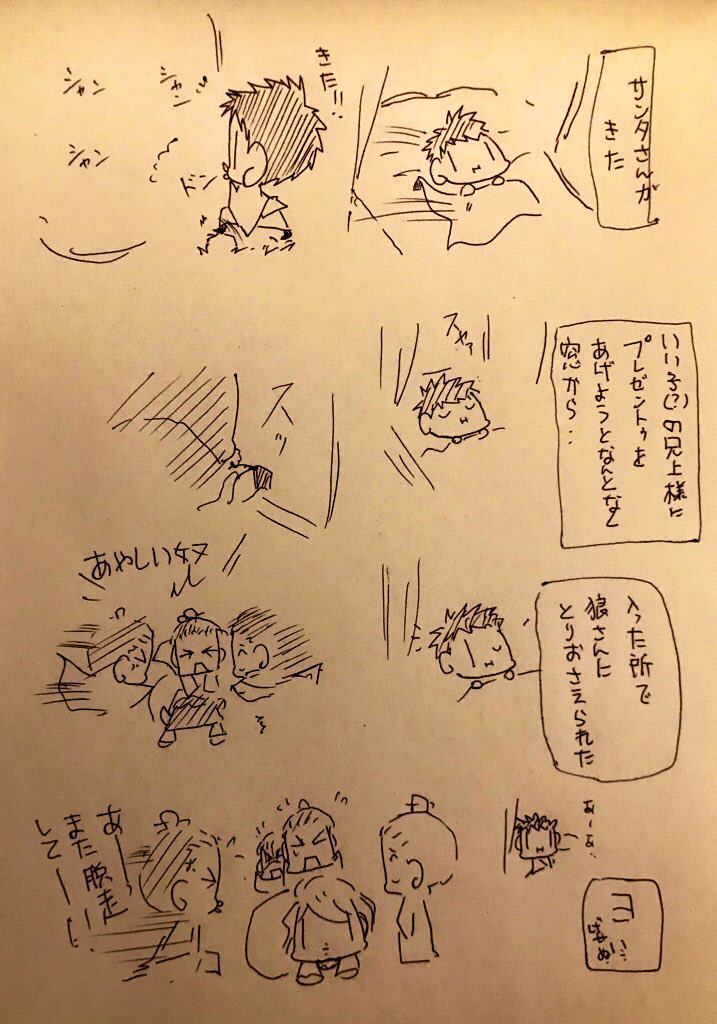 サンタさんが
きた
きた!!
シャン
シャン
シャン
ドン
いい子(?)の兄上様に
プレゼントゥを
あげようとなんとなく
窓から…
スヤァ
スッ
入った所で
狼さんに
とりおさえられた
あやしい奴ヌ
あーあ、
ヨ
あー
また脱走
してーい